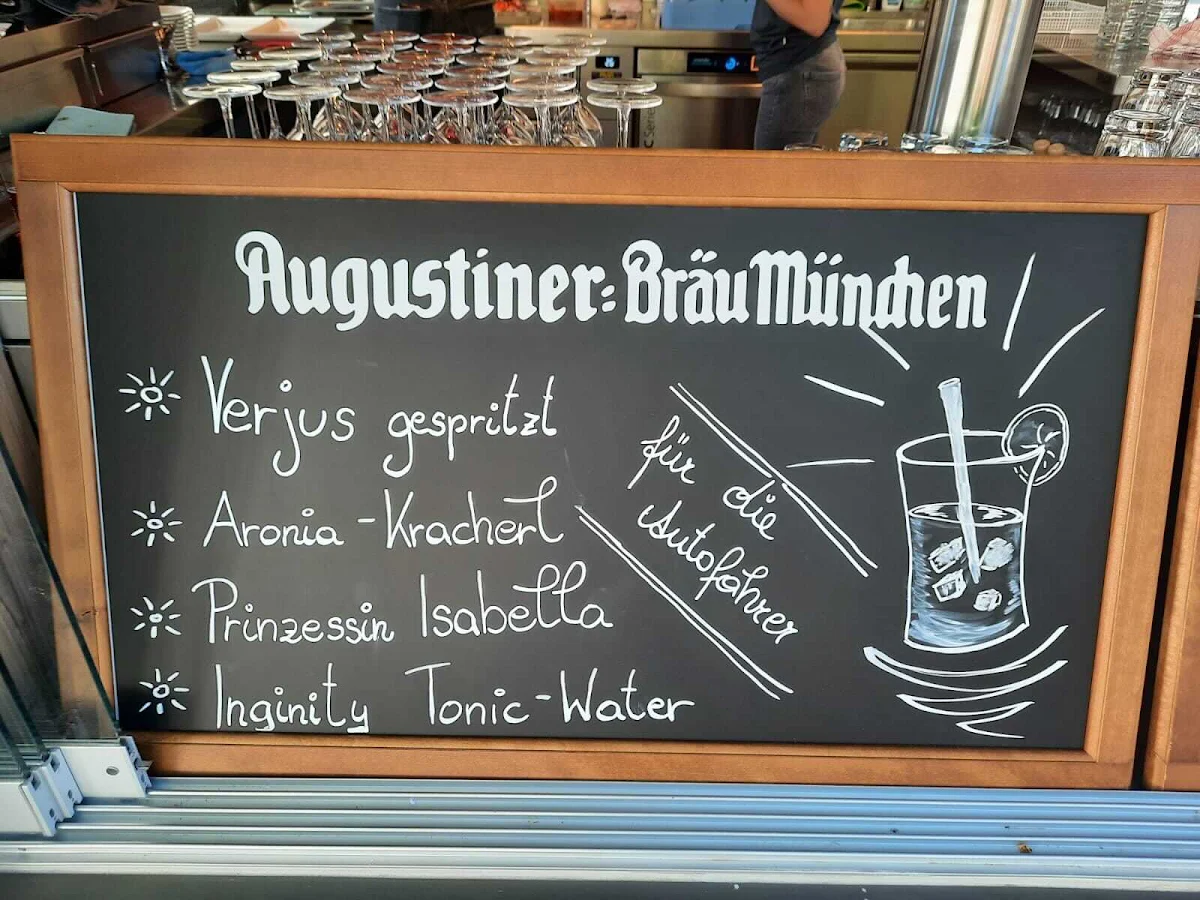 Augustiner-Bräu München
Verjus gespritzt
Aronia-Kracherl
Prinzessin Isabella
Inginity Tonic-Water
für die
Autofahrer